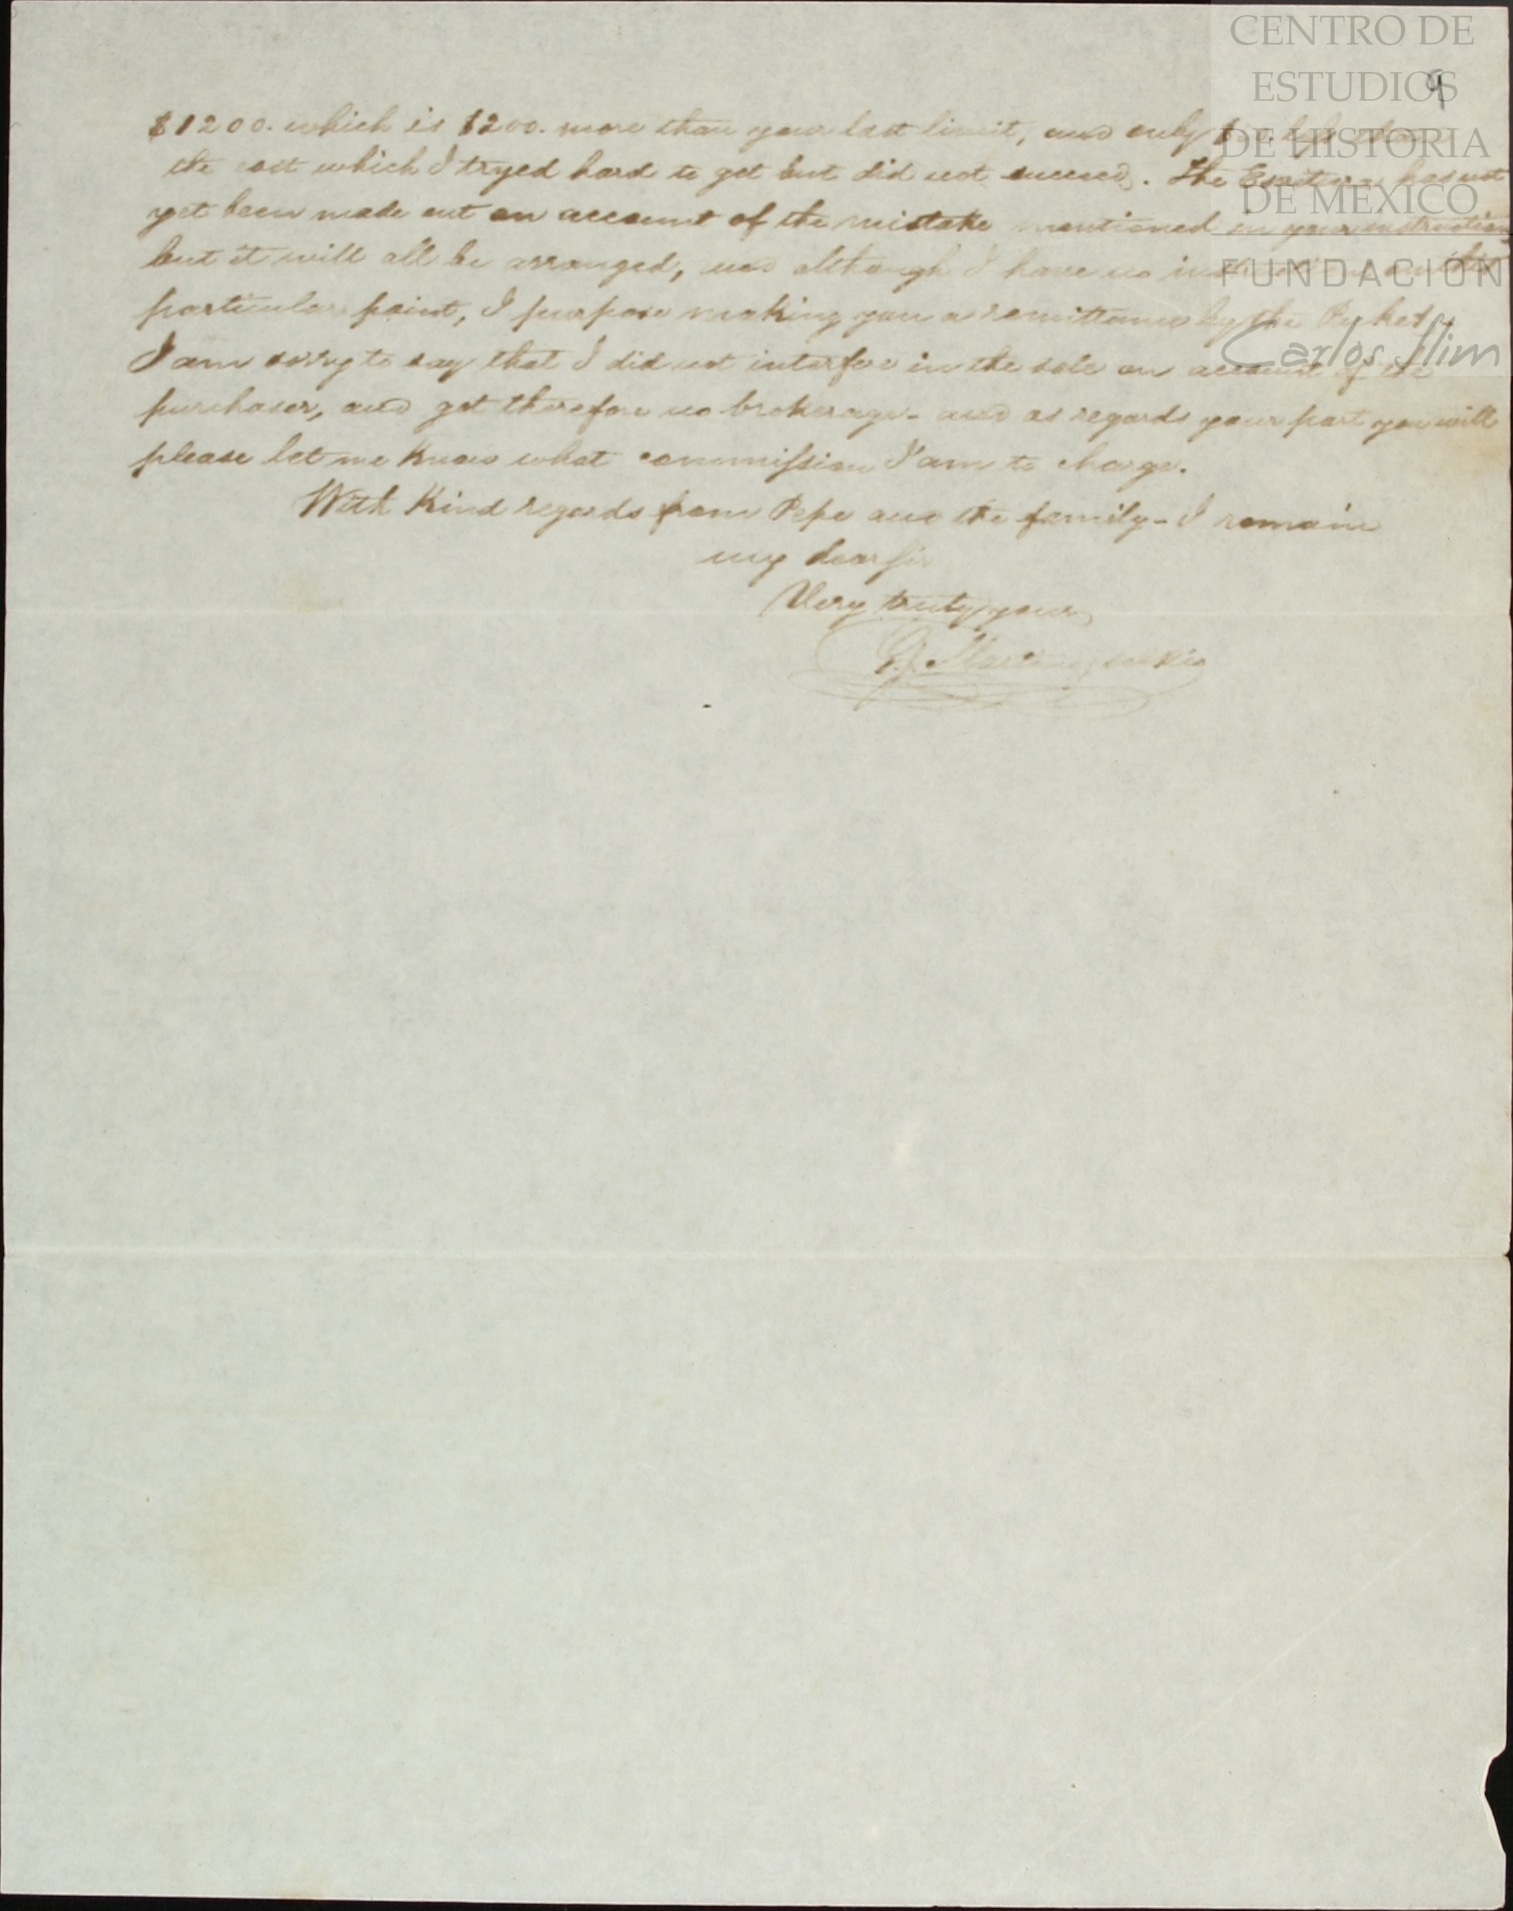 CENTRO DE
ESTUDIOS
DE HISTORIA
DE MEXICO
FUNDACIÓN
Carlos Slim
9
$1200. which is $200. more than your last limit, and only
the cost which I tryed hard to get but did not succeed. The Escritura has not
yet been made out on account of the mistake mentioned in your instructions
but it will all be arranged, and although I have no
particular point, I purpose making you a remittance by the Packet
I am sorry to say that I did not interfere in the sale on account of the
purchaser, and got therefore no brokerage - and as regards your part you will
please let me know what commission I am to charge.
With Kind regards from Pepe and the family - I remain
my dear sir
Very truly yours